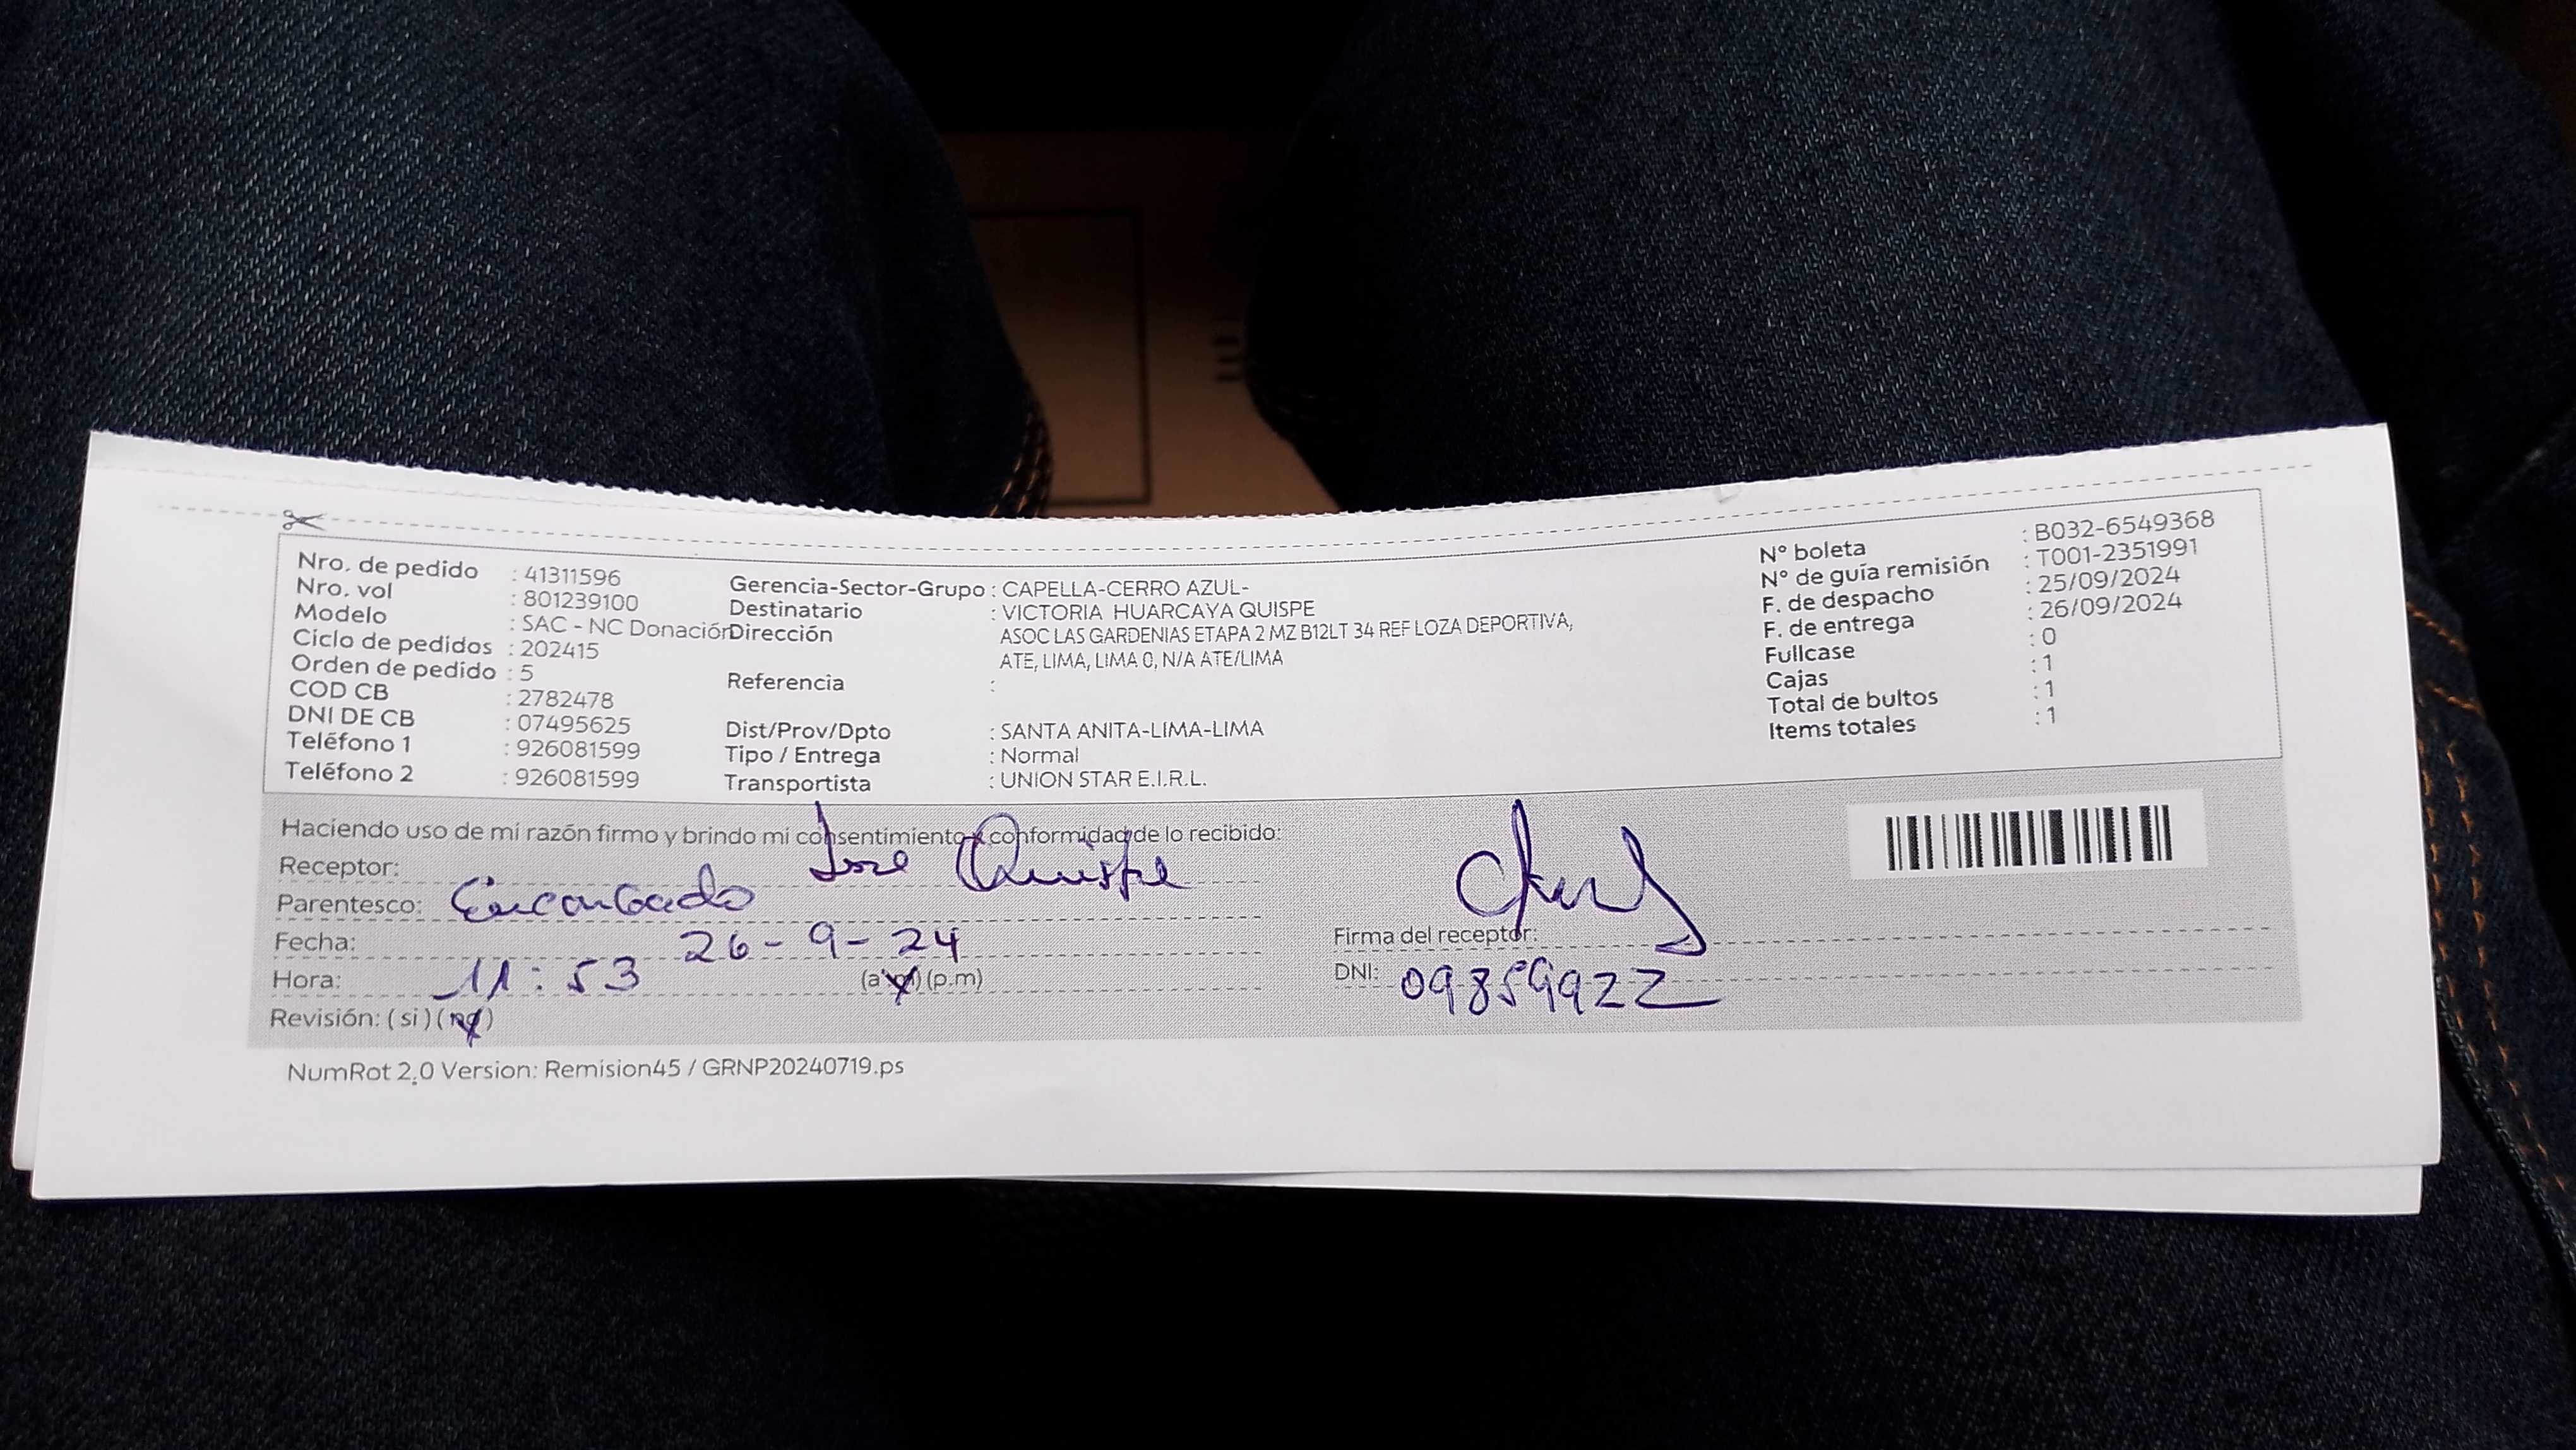 Nro. de pedido : 41311596
Nro. vol : 801239100
Modelo : SAC - NC Donación
Ciclo de pedidos : 202415
Orden de pedido : 5
COD CB : 2782478
DNI DE CB : 07495625
Teléfono 1 : 926081599
Teléfono 2 : 926081599
Gerencia-Sector-Grupo : CAPELLA-CERRO AZUL-
Destinatario : VICTORIA HUARCAYA QUISPE
Dirección ASOC LAS GARDENIAS ETAPA 2 MZ B12LT 34 REF LOZA DEPORTIVA,
ATE, LIMA, LIMA 0, N/A ATE/LIMA
Referencia :
Dist/Prov/Dpto : SANTA ANITA-LIMA-LIMA
Tipo / Entrega : Normal
Transportista : UNION STAR E.I.R.L.
N° boleta : B032-6549368
N° de guía remisión : T001-2351991
F. de despacho : 25/09/2024
F. de entrega : 26/09/2024
Fullcase : 0
Cajas : 1
Total de bultos : 1
Items totales : 1
Haciendo uso de mi razón firmo y brindo mi consentimiento y conformidad de lo recibido:
Receptor: Jose Quispe
Parentesco: Encargado
Fecha: 26-9-24
Hora: 11:53 (a.m) (p.m)
Revisión: (si) (no)
Firma del receptor:
DNI: 09859922
NumRot 2.0 Version: Remision45 / GRNP20240719.ps